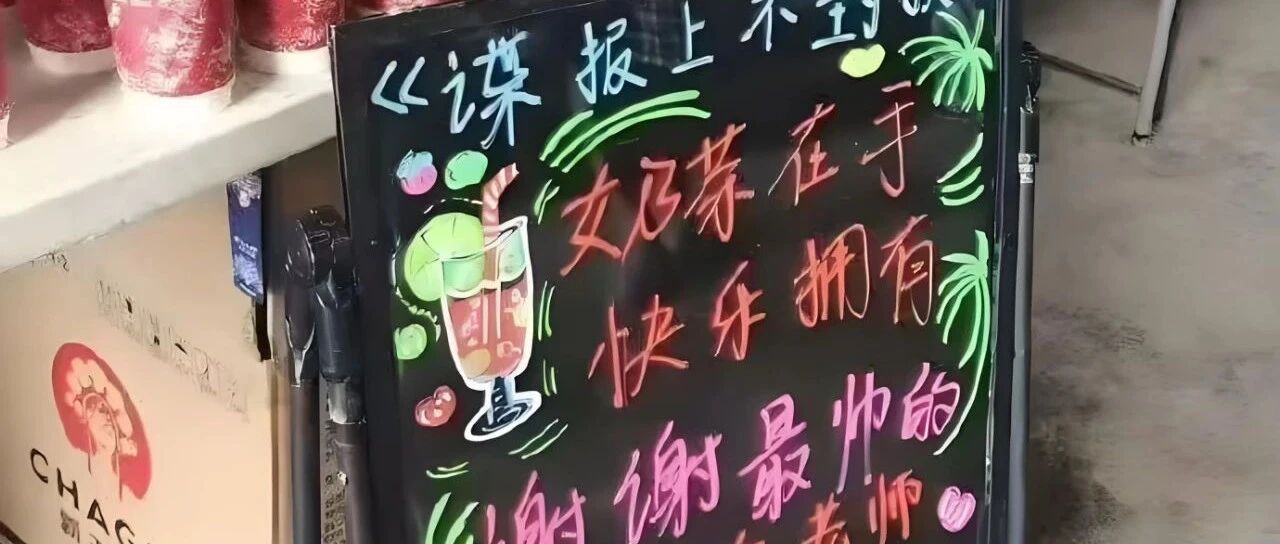 《谍报上不封
奶茶在手
快乐拥有
谢谢最帅的
老师
CHAG
新